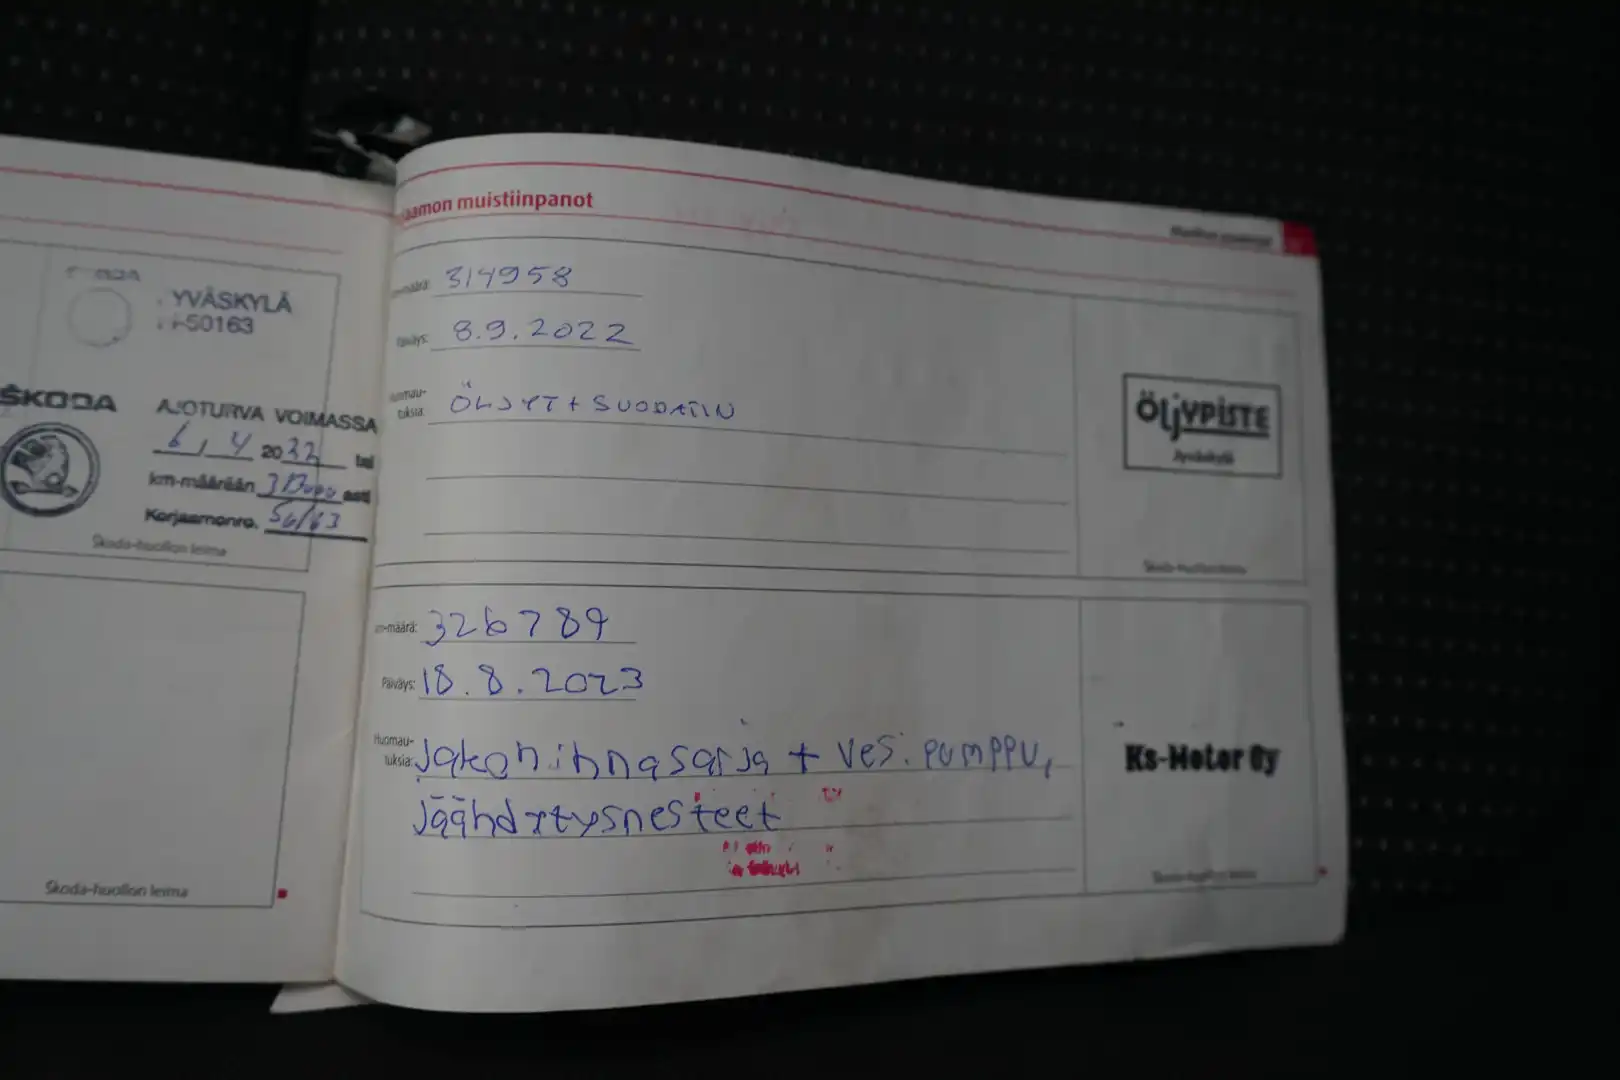 YVÄSKYLÄ
50163
ŠKODA
AJOTURVA VOIMASSA
6, 4 2022 tai
km-määrään asti
Korjaamonro.
Skoda-huollon leima
Skoda-huollon leima
aamon muistiinpanot
314958
Päiväys: 8.9.2022
Huomau-
tuksia: ÖLJYT + SUODATIN
ÖLJYPISTE
Jyväskylä
Skoda-huollon leima
m-määrä: 326789
Päiväys: 18.8.2023
Huomau-
tuksia: Jakohihnasarja + vesipumppu,
Jäähdytysnesteet
Ks-Motor Oy